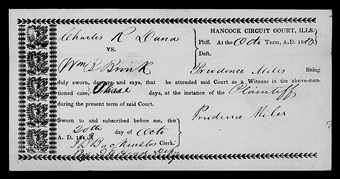 Charles R Dana
VS.
Wm B Brink
HANCOCK CIRCUIT COURT, ILLS.
Pltff. At the Octo Term, A.D. 1843
Deft.
Prudence Miles Being
duly sworn, and says, that he attended said Court as a Witness in the above-men-
tioned case, Three days, at the instance of the Plaintiff
during the present term of said Court.
Prudence Miles
Sworn to and subscribed before me, this
20th day of Octo
A. D. 1843
J B Backenstos Clerk.
By Depty